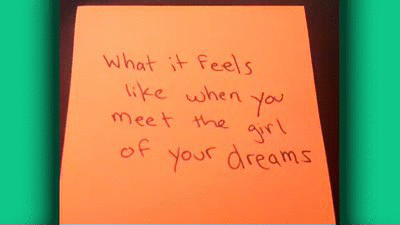 What it feels
like when you
meet the girl
of your dreams